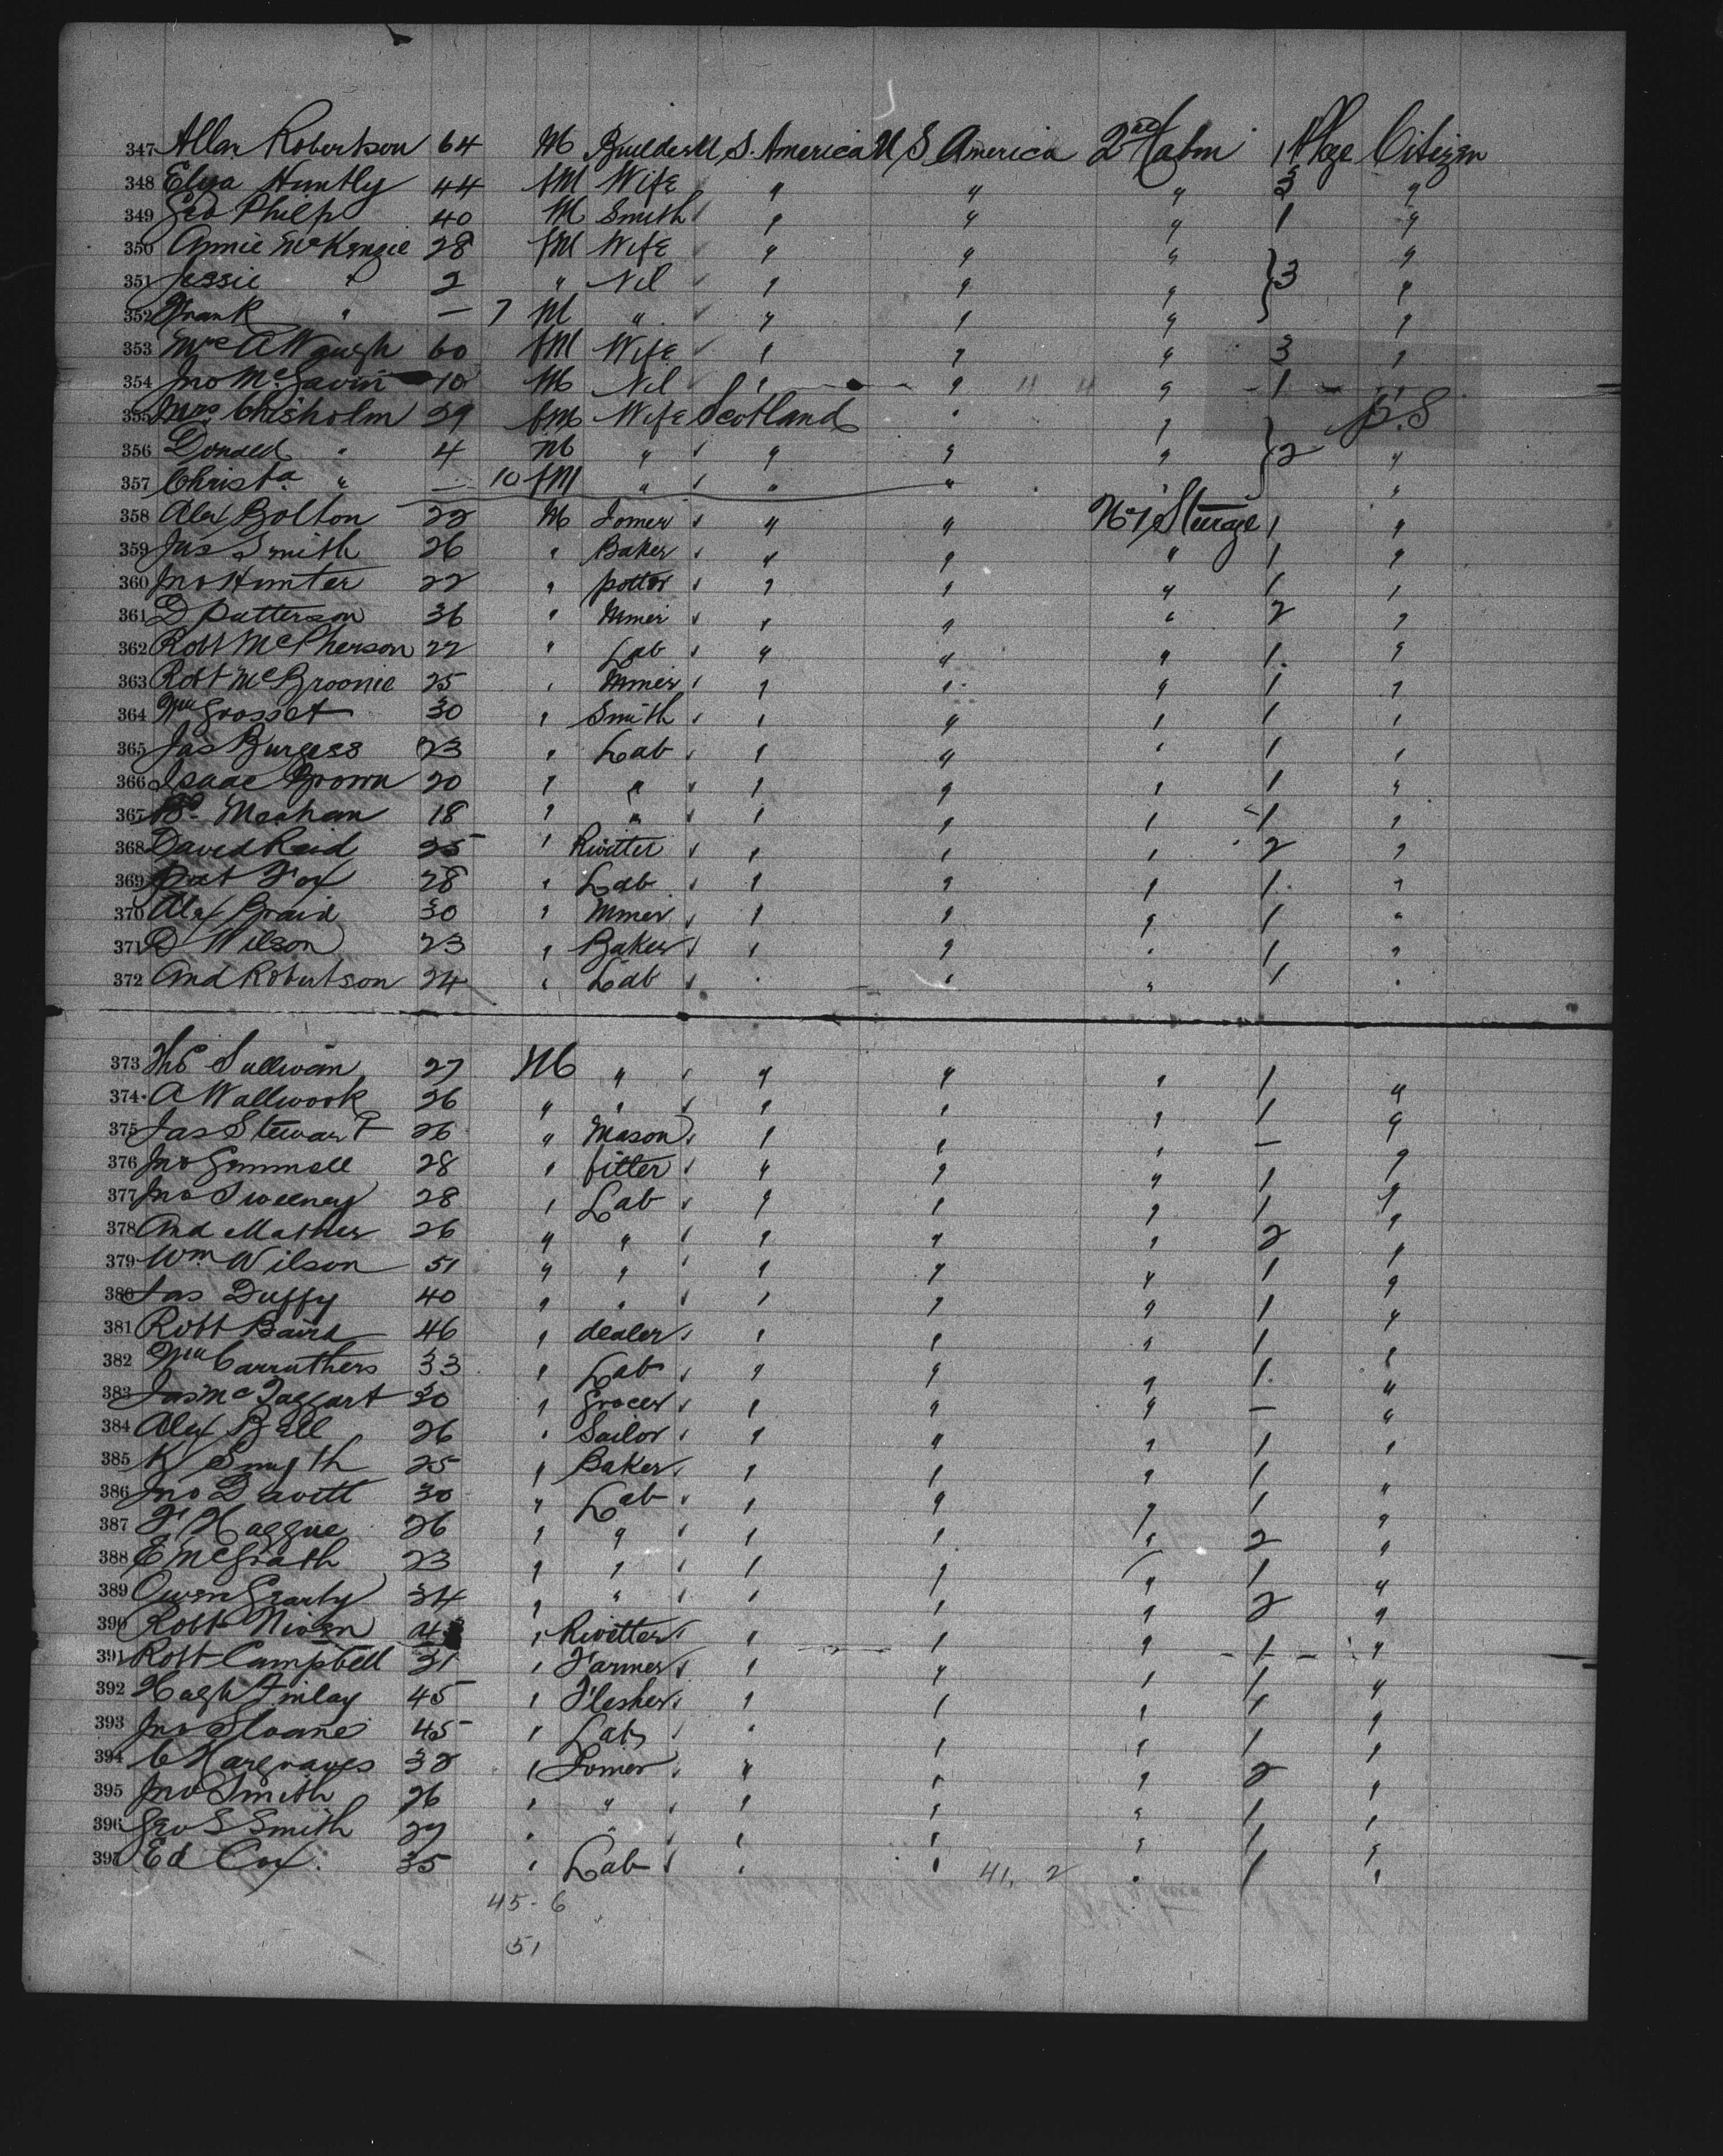 347 Allan Robertson 64 M Builder U.S. America U S America 2nd Cabin 1 Pkge Citizen
348 Eliza Huntly 44 fM Wife " " " 3 "
349 Geo Philp 40 M Smith " " " 1 "
350 Annie McKenzie 28 fM Wife " " " "
351 Jessie " 2 " Nil " " " } 3 "
352 Frank " — 7 M " " " " "
353 Mrs A Waugh 60 fM Wife " " " 3 "
354 Jno McGavin 10 M Nil " " " 1 "
355 Mrs Chisholm 29 fM Wife Scotland " " P.S
356 Donald " 4 M " " " " } 2 "
357 Christa " — 10 fM " " " " "
358 Alex Bolton 22 M Joiner " " No 1 Steerage 1 "
359 Jas Smith 26 " Baker " " " 1 "
360 Jno Hunter 22 " potter " " " 1 "
361 D Patterson 36 " Miner " " " 2 "
362 Robt McPherson 22 " Lab " " " 1 "
363 Robt McBroonie 25 " Miner " " " 1 "
364 Wm Grosset 30 " Smith " " " 1 "
365 Jas Burgess 23 " Lab " " " 1 "
366 Isaac Brown 20 " " " " " 1 "
367 Meahan 18 " " " " " 1 "
368 David Reid 25 " Rivitter " " " 2 "
369 Pat Fox 28 " Lab " " " 1 "
370 Alex Braid 30 " Miner " " " 1 "
371 D Wilson 23 " Baker " " " 1 "
372 And Robertson 24 " Lab " " " 1 "
373 Ths Sullivan 27 M " " " " 1 "
374 A Wallwork 26 " " " " " 1 "
375 Jas Stewart 26 " Mason " " " — "
376 Jno Gemmell 28 " fitter " " " 1 "
377 Jno Sweeney 28 " Lab " " " 1 "
378 And Mather 26 " " " " " 2 "
379 Wm Wilson 51 " " " " " 1 "
380 Jas Duffy 40 " " " " " 1 "
381 Robt Baird 46 " dealer " " " 1 "
382 Wm Carruthers 33 " Lab " " " 1 "
383 Jas McTaggart 30 " Grocer " " " — "
384 Alex Bell 26 " Sailor " " " 1 "
385 Smyth 25 " Baker " " " 1 "
386 Jno Davitt 30 " Lab " " " 1 "
387 F Haggie 26 " " " " " 2 "
388 E McGrath 23 " " " " " 1 "
389 Owen Gearty 34 " " " " " 2 "
390 Robt Niven " Rivetter " " " 1 "
391 Robt Campbell 31 " Farmer " " " 1 "
392 Hugh Finlay 45 " Flesher " " " 1 "
393 Jno Sloane 45 " Lab " " " 1 "
394 C Hargraves 32 " Joiner " " " 2 "
395 Jno Smith 26 " " " " " 1 "
396 Geo S Smith 27 " " " " " 1 "
397 Ed Cox 35 " Lab " " " 1 "
41, 2
45 - 6
51